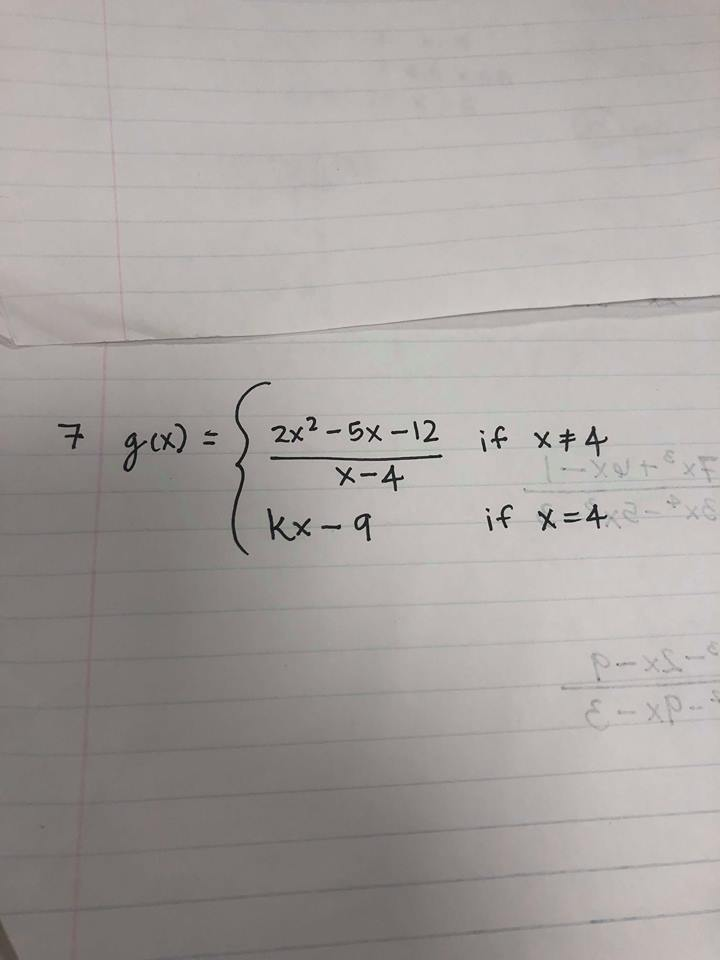 7 g(x) = { 2x² - 5x - 12 / x - 4 if x ≠ 4
kx - 9 if x = 4